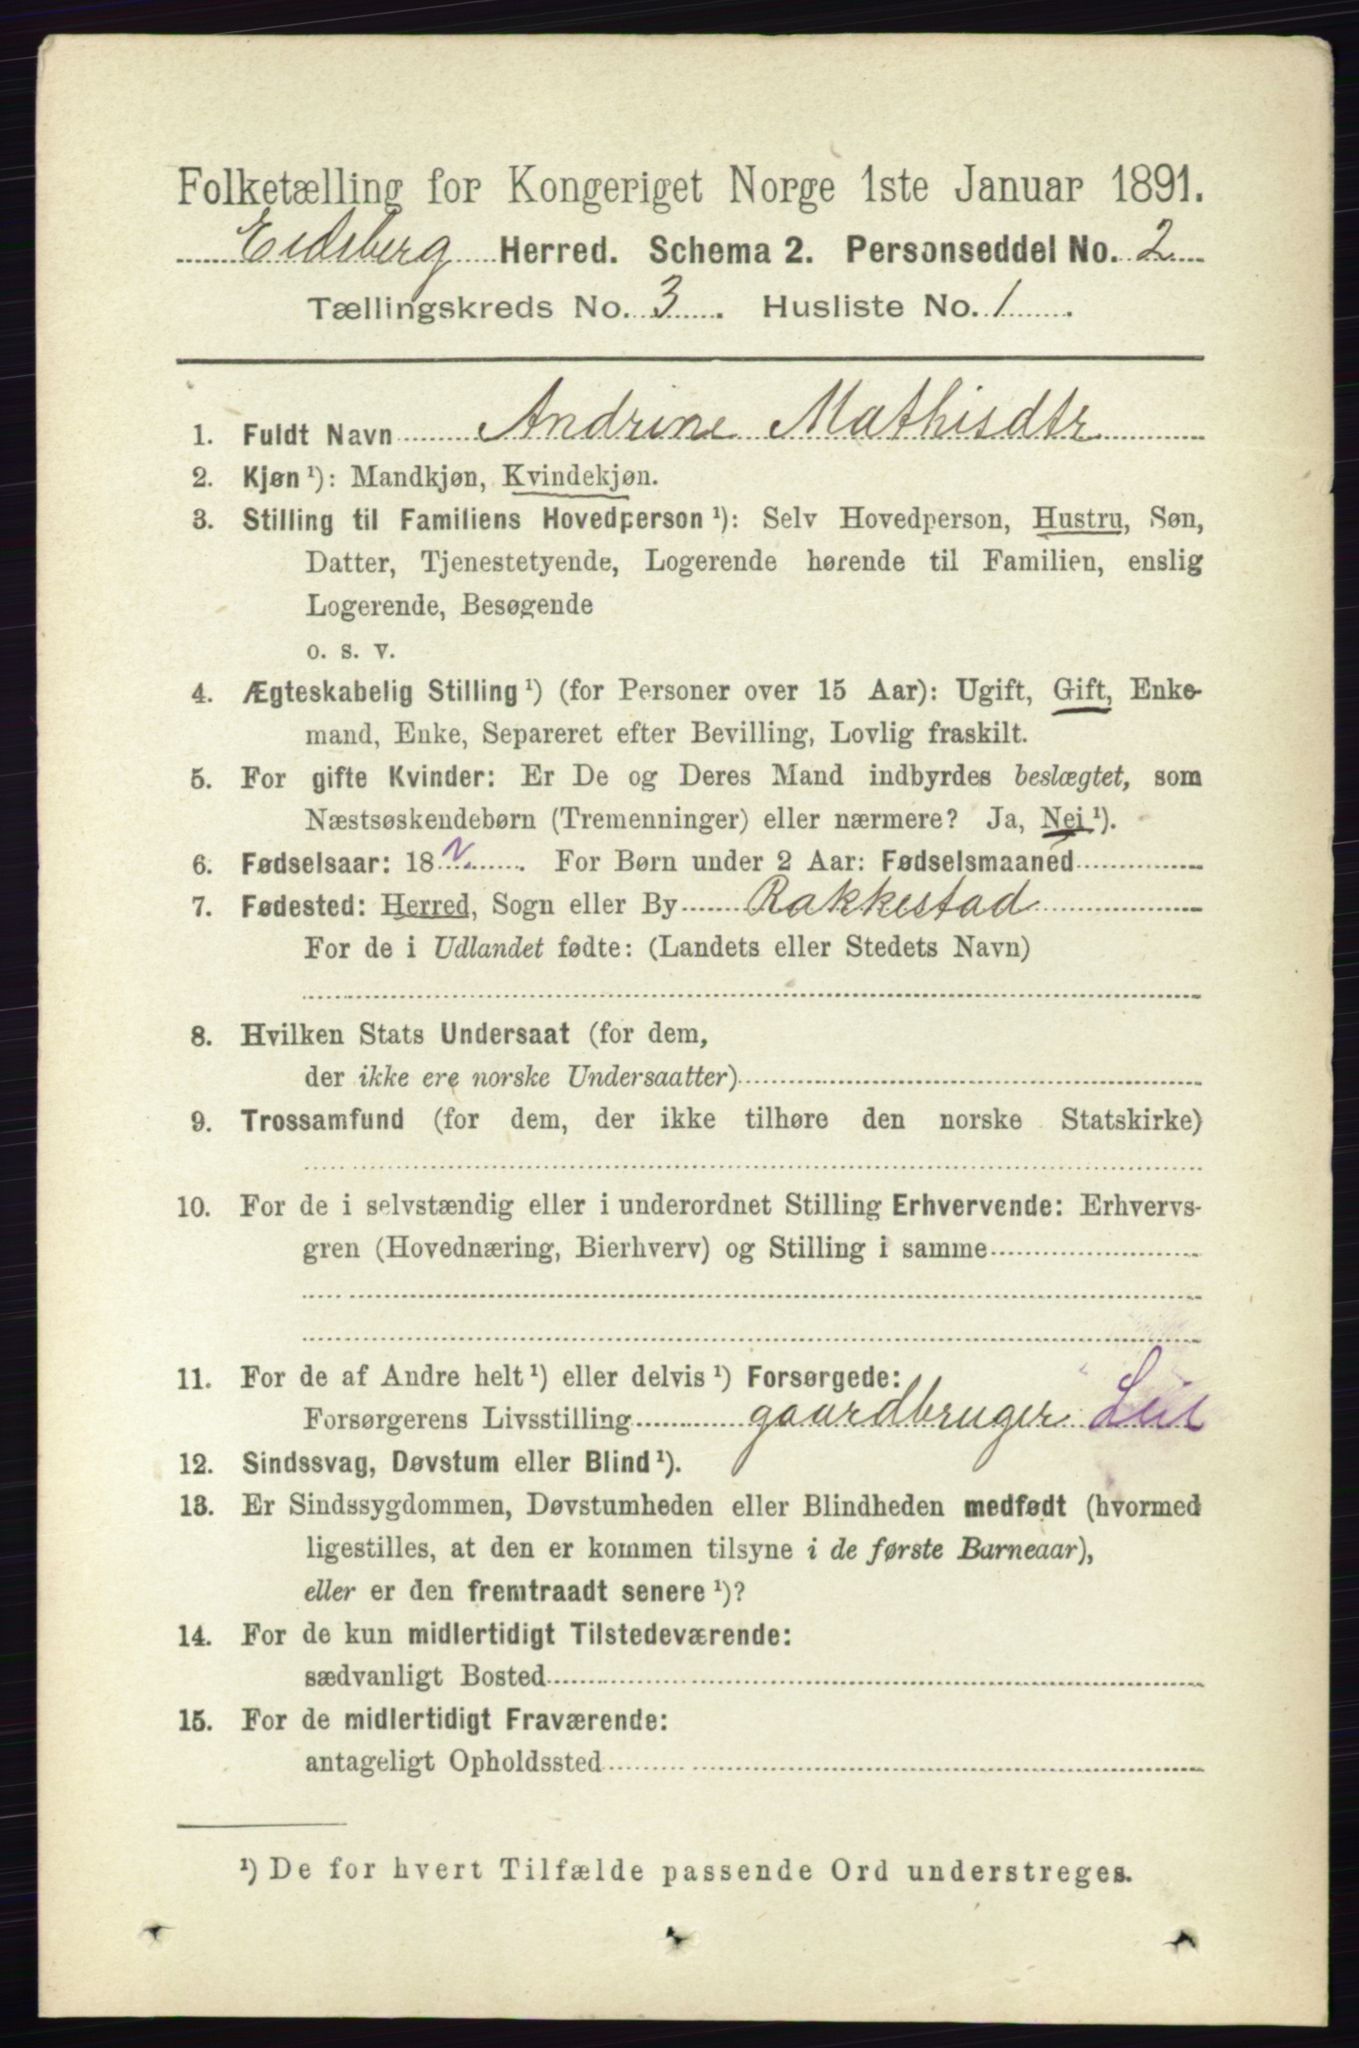 Folketælling for Kongeriget Norge 1ste Januar 1891.
Eidsberg Herred. Schema 2. Personseddel No. 2
Tællingskreds No. 3. Husliste No. 1.
1. Fuldt Navn Andrine Mathisdtr
2. Kjøn ¹): Mandkjøn, Kvindekjøn.
3. Stilling til Familiens Hovedperson ¹): Selv Hovedperson, Hustru, Søn,
Datter, Tjenestetyende, Logerende hørende til Familien, enslig
Logerende, Besøgende
o. s. v.
4. Ægteskabelig Stilling ¹) (for Personer over 15 Aar): Ugift, Gift, Enke-
mand, Enke, Separeret efter Bevilling, Lovlig fraskilt.
5. For gifte Kvinder: Er De og Deres Mand indbyrdes beslægtet, som
Næstsøskendebørn (Tremenninger) eller nærmere? Ja, Nei ¹).
6. Fødselsaar: 18 . For Børn under 2 Aar: Fødselsmaaned
7. Fødested: Herred, Sogn eller By Rakkestad
For de i Udlandet fødte: (Landets eller Stedets Navn)
8. Hvilken Stats Undersaat (for dem,
der ikke ere norske Undersaatter)
9. Trossamfund (for dem, der ikke tilhøre den norske Statskirke)
10. For de i selvstændig eller i underordnet Stilling Erhvervende: Erhvervs-
gren (Hovednæring, Bierhverv) og Stilling i samme
11. For de af Andre helt ¹) eller delvis ¹) Forsørgede:
Forsørgerens Livsstilling gaardbruger
12. Sindssvag, Døvstum eller Blind ¹).
13. Er Sindssygdommen, Døvstumheden eller Blindheden medfødt (hvormed
ligestilles, at den er kommen tilsyne i de første Barneaar),
eller er den fremtraadt senere ¹)?
14. For de kun midlertidigt Tilstedeværende:
sædvanligt Bosted
15. For de midlertidigt Fraværende:
antageligt Opholdssted
¹) De for hvert Tilfælde passende Ord understreges.